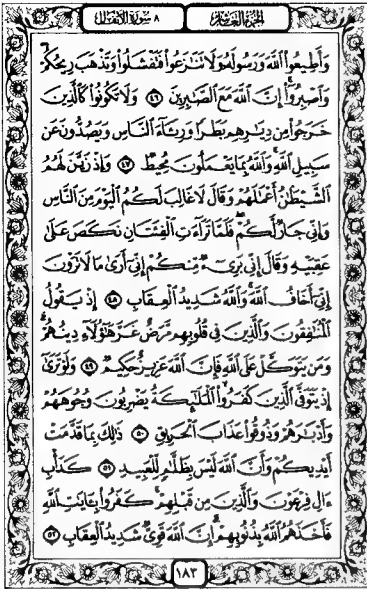 الجزء العاشر
٨ سورة الأنفال
وَأَطِيعُوا۟ ٱللَّهَ وَرَسُولَهُۥ وَلَا تَنَـٰزَعُوا۟ فَتَفْشَلُوا۟ وَتَذْهَبَ رِيحُكُمْ
وَٱصْبِرُوٓا۟ إِنَّ ٱللَّهَ مَعَ ٱلصَّـٰبِرِينَ ٤٦ وَلَا تَكُونُوا۟ كَٱلَّذِينَ
خَرَجُوا۟ مِن دِيَـٰرِهِم بَطَرًا وَرِئَآءَ ٱلنَّاسِ وَيَصُدُّونَ عَن
سَبِيلِ ٱللَّهِ وَٱللَّهُ بِمَا يَعْمَلُونَ مُحِيطٌ ٤٧ وَإِذْ زَيَّنَ لَهُمُ
ٱلشَّيْطَـٰنُ أَعْمَـٰلَهُمْ وَقَالَ لَا غَالِبَ لَكُمُ ٱلْيَوْمَ مِنَ ٱلنَّاسِ
وَإِنِّى جَارٌ لَّكُمْ فَلَمَّا تَرَآءَتِ ٱلْفِئَتَانِ نَكَصَ عَلَىٰ
عَقِبَيْهِ وَقَالَ إِنِّى بَرِىٓءٌ مِّنكُمْ إِنِّىٓ أَرَىٰ مَا لَا تَرَوْنَ
إِنِّىٓ أَخَافُ ٱللَّهَ وَٱللَّهُ شَدِيدُ ٱلْعِقَابِ ٤٨ إِذْ يَقُولُ
ٱلْمُنَـٰفِقُونَ وَٱلَّذِينَ فِى قُلُوبِهِم مَّرَضٌ غَرَّ هَـٰٓؤُلَآءِ دِينُهُمْ
وَمَن يَتَوَكَّلْ عَلَى ٱللَّهِ فَإِنَّ ٱللَّهَ عَزِيزٌ حَكِيمٌ ٤٩ وَلَوْ تَرَىٰٓ
إِذْ يَتَوَفَّى ٱلَّذِينَ كَفَرُوا۟ ٱلْمَلَـٰٓئِكَةُ يَضْرِبُونَ وُجُوهَهُمْ
وَأَدْبَـٰرَهُمْ وَذُوقُوا۟ عَذَابَ ٱلْحَرِيقِ ٥٠ ذَٰلِكَ بِمَا قَدَّمَتْ
أَيْدِيكُمْ وَأَنَّ ٱللَّهَ لَيْسَ بِظَلَّـٰمٍ لِّلْعَبِيدِ ٥١ كَدَأْبِ
ءَالِ فِرْعَوْنَ وَٱلَّذِينَ مِن قَبْلِهِمْ كَفَرُوا۟ بِـَٔايَـٰتِ ٱللَّهِ
فَأَخَذَهُمُ ٱللَّهُ بِذُنُوبِهِمْ إِنَّ ٱللَّهَ قَوِىٌّ شَدِيدُ ٱلْعِقَابِ ٥٢
١٨٣